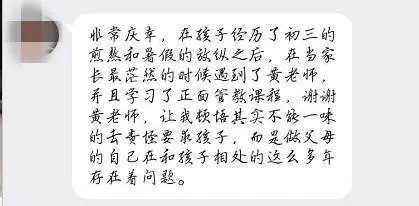 非常庆幸，在孩子经历了初三的
煎熬和暑假的放纵之后，在当家
长最茫然的时候遇到了黄老师，
并且学习了正面管教课程，谢谢
黄老师，让我顿悟其实不能一味
的去责怪要求孩子，而是做父母
的自己在和孩子相处的这么多年
存在着问题。